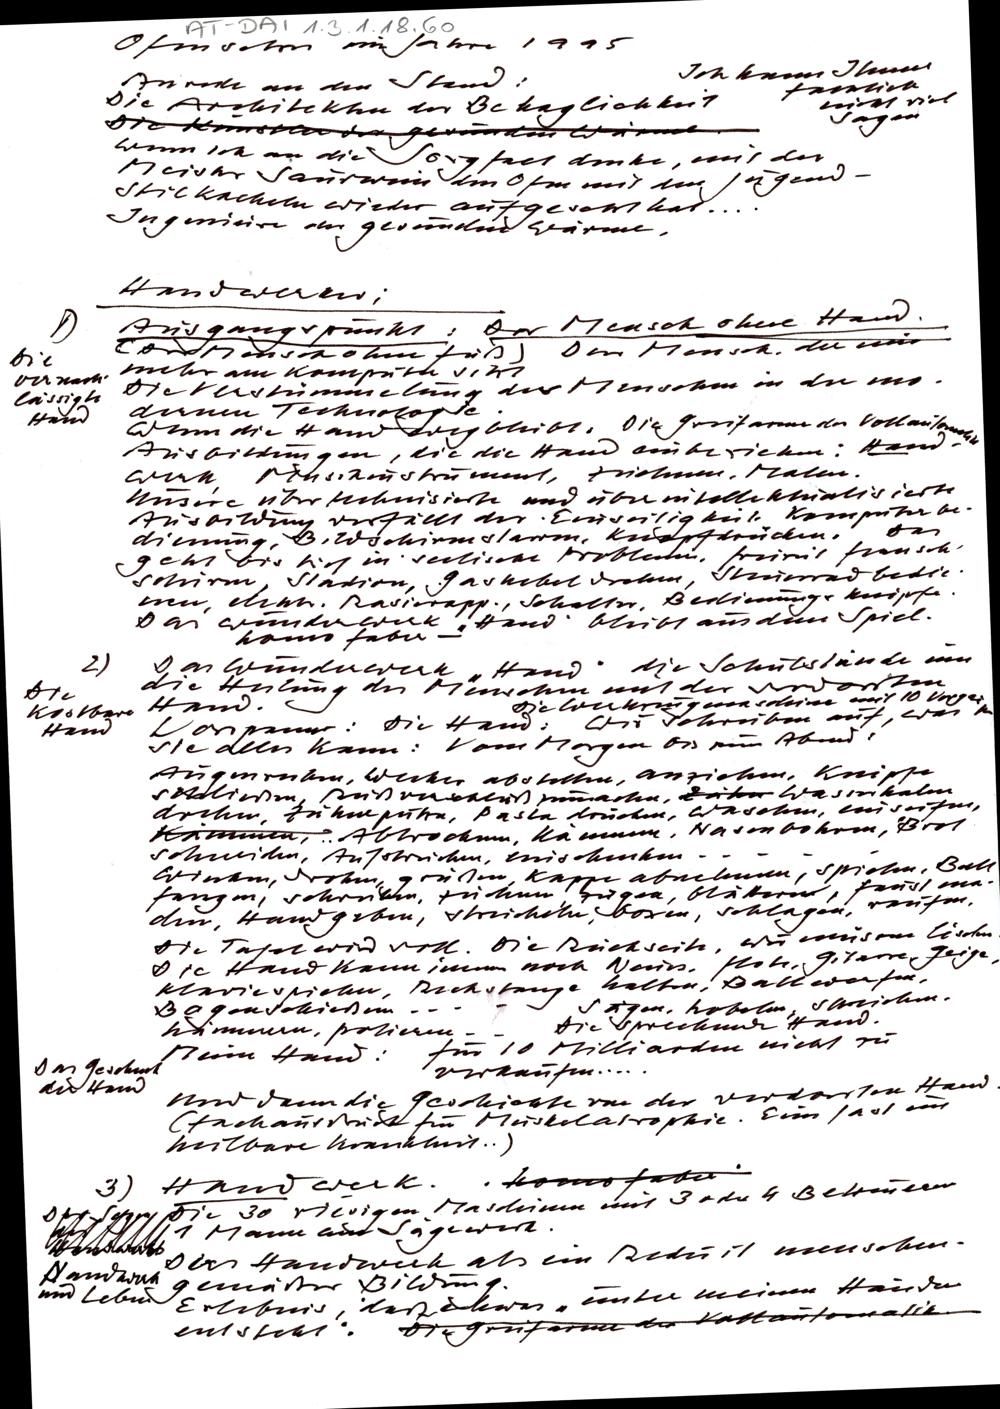 AT-DAI 1.3.1.18.60
Ofensetzer im Jahre 1995
Anrede an den Stand:
Ich kann Ihnen
fachlich
nicht viel
sagen
Die Architekten der Behaglichkeit
Die Künstler der gesunden Wärme
Wenn ich an die Sorgfalt denke, mit der
Meister Saurwein den Ofen mit den Jugend-
stilkacheln wieder aufgesetzt hat....
Ingenieure der gesunden Wärme.
Handwerker:
1)
Die
vernach-
lässigte
Hand
Ausgangspunkt: Der Mensch ohne Hand.
(Der Mensch ohne Füß) Der Mensch, der nur
mehr am Komputer sitzt
Die Verstümmelung des Menschen in der mo-
dernen Technologie.
Wenn die Hand wegbleibt. Die Greifarme der Vollautomatik
Ausbildungen, die die Hand einbeziehen: Hand-
werk, Musikinstrument, Zeichnen, Malen.
Unsere übertechnisierte und überintellektualisierte
Ausbildung verfällt der Einseigkeit. Komputerbe-
dienung, Bildschirmstarren, Knopfdrücken. Das
geht bis tief in seelische Probleme. Freizeit Fernseh-
schirm, Stadion, Gashebel drehen, Steuerrad bedie-
nen, elektr. Rasierapp., Schalter, Bedienungsknöpfe.
Das Wunderwerk "Hand" bleibt aus dem Spiel.
homo faber –
2)
Die
kostbare
Hand
Das Wunderwerk "Hand" die Schulstunde um
die Heilung des Menschen mit der verdorrten
Hand.
Die Werkzeugmaschine mit 10
Vorspann: Die Hand: Wir schreiben auf, was
sie alles kann: Vom Morgen bis zum Abend!
Augenreiben, Wecker abstellen, anziehen, Knöpfe
schließen, Reißverschluß zumachen, Zähne Wasserhahn
drehen, Zähneputzen, Pasta drücken, waschen, einseifen,
Kämmen, Abtrocknen, Kämmen, Nasenbohren, Brot
schneiden, Aufstreichen, einschenken - - - -
Winken, drohen, grüßen, Kappe abnehmen, spielen, Ball
fangen, schreiben, zeichnen, zeigen, blättern, Faust ma-
chen, Handgeben, streicheln, boxen, schlagen, raufen.
Die Tafel wird voll. Die Rückseite, wir müssen löschen
Die Hand kann immer noch Neues. Flöte, Gitarre, Geige,
Klavierspielen, Reckstange halten, Ballwerfen,
Bogenschießen - - - - Sägen, hobeln, streichen.
hämmern, polieren - - Die sprechende Hand.
Das Geschenk
der Hand
Meine Hand: für 10 Milliarden nicht zu
verkaufen.....
Und dann die Geschichte von der verdorrten Hand.
(Fachausdruck für Muskelatrophie. Eine fast un
heilbare Krankheit..)
3) Handwerk. homo faber
Handwerk
und Leben
Die 30 riesigen Maschinen mit 3 oder 4 Betreuern
1 Mann ein Sägewerk.
Das Handwerk als ein Reduit menschen-
gemäßer Bildung.
Erlebnis, daß etwas "unter meinen Händen
entsteht". Die Greifarme der Vollautomatik